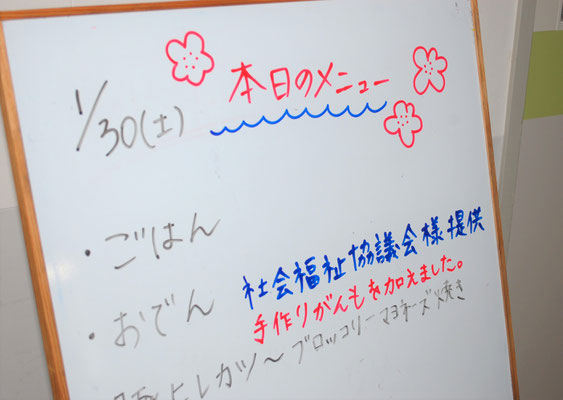 本日のメニュー
1/30(土)
・ごはん
・おでん 社会福祉協議会様提供
手作りがんもを加えました。
ヒレカツ〜ブロッコリーマヨネーズ焼き